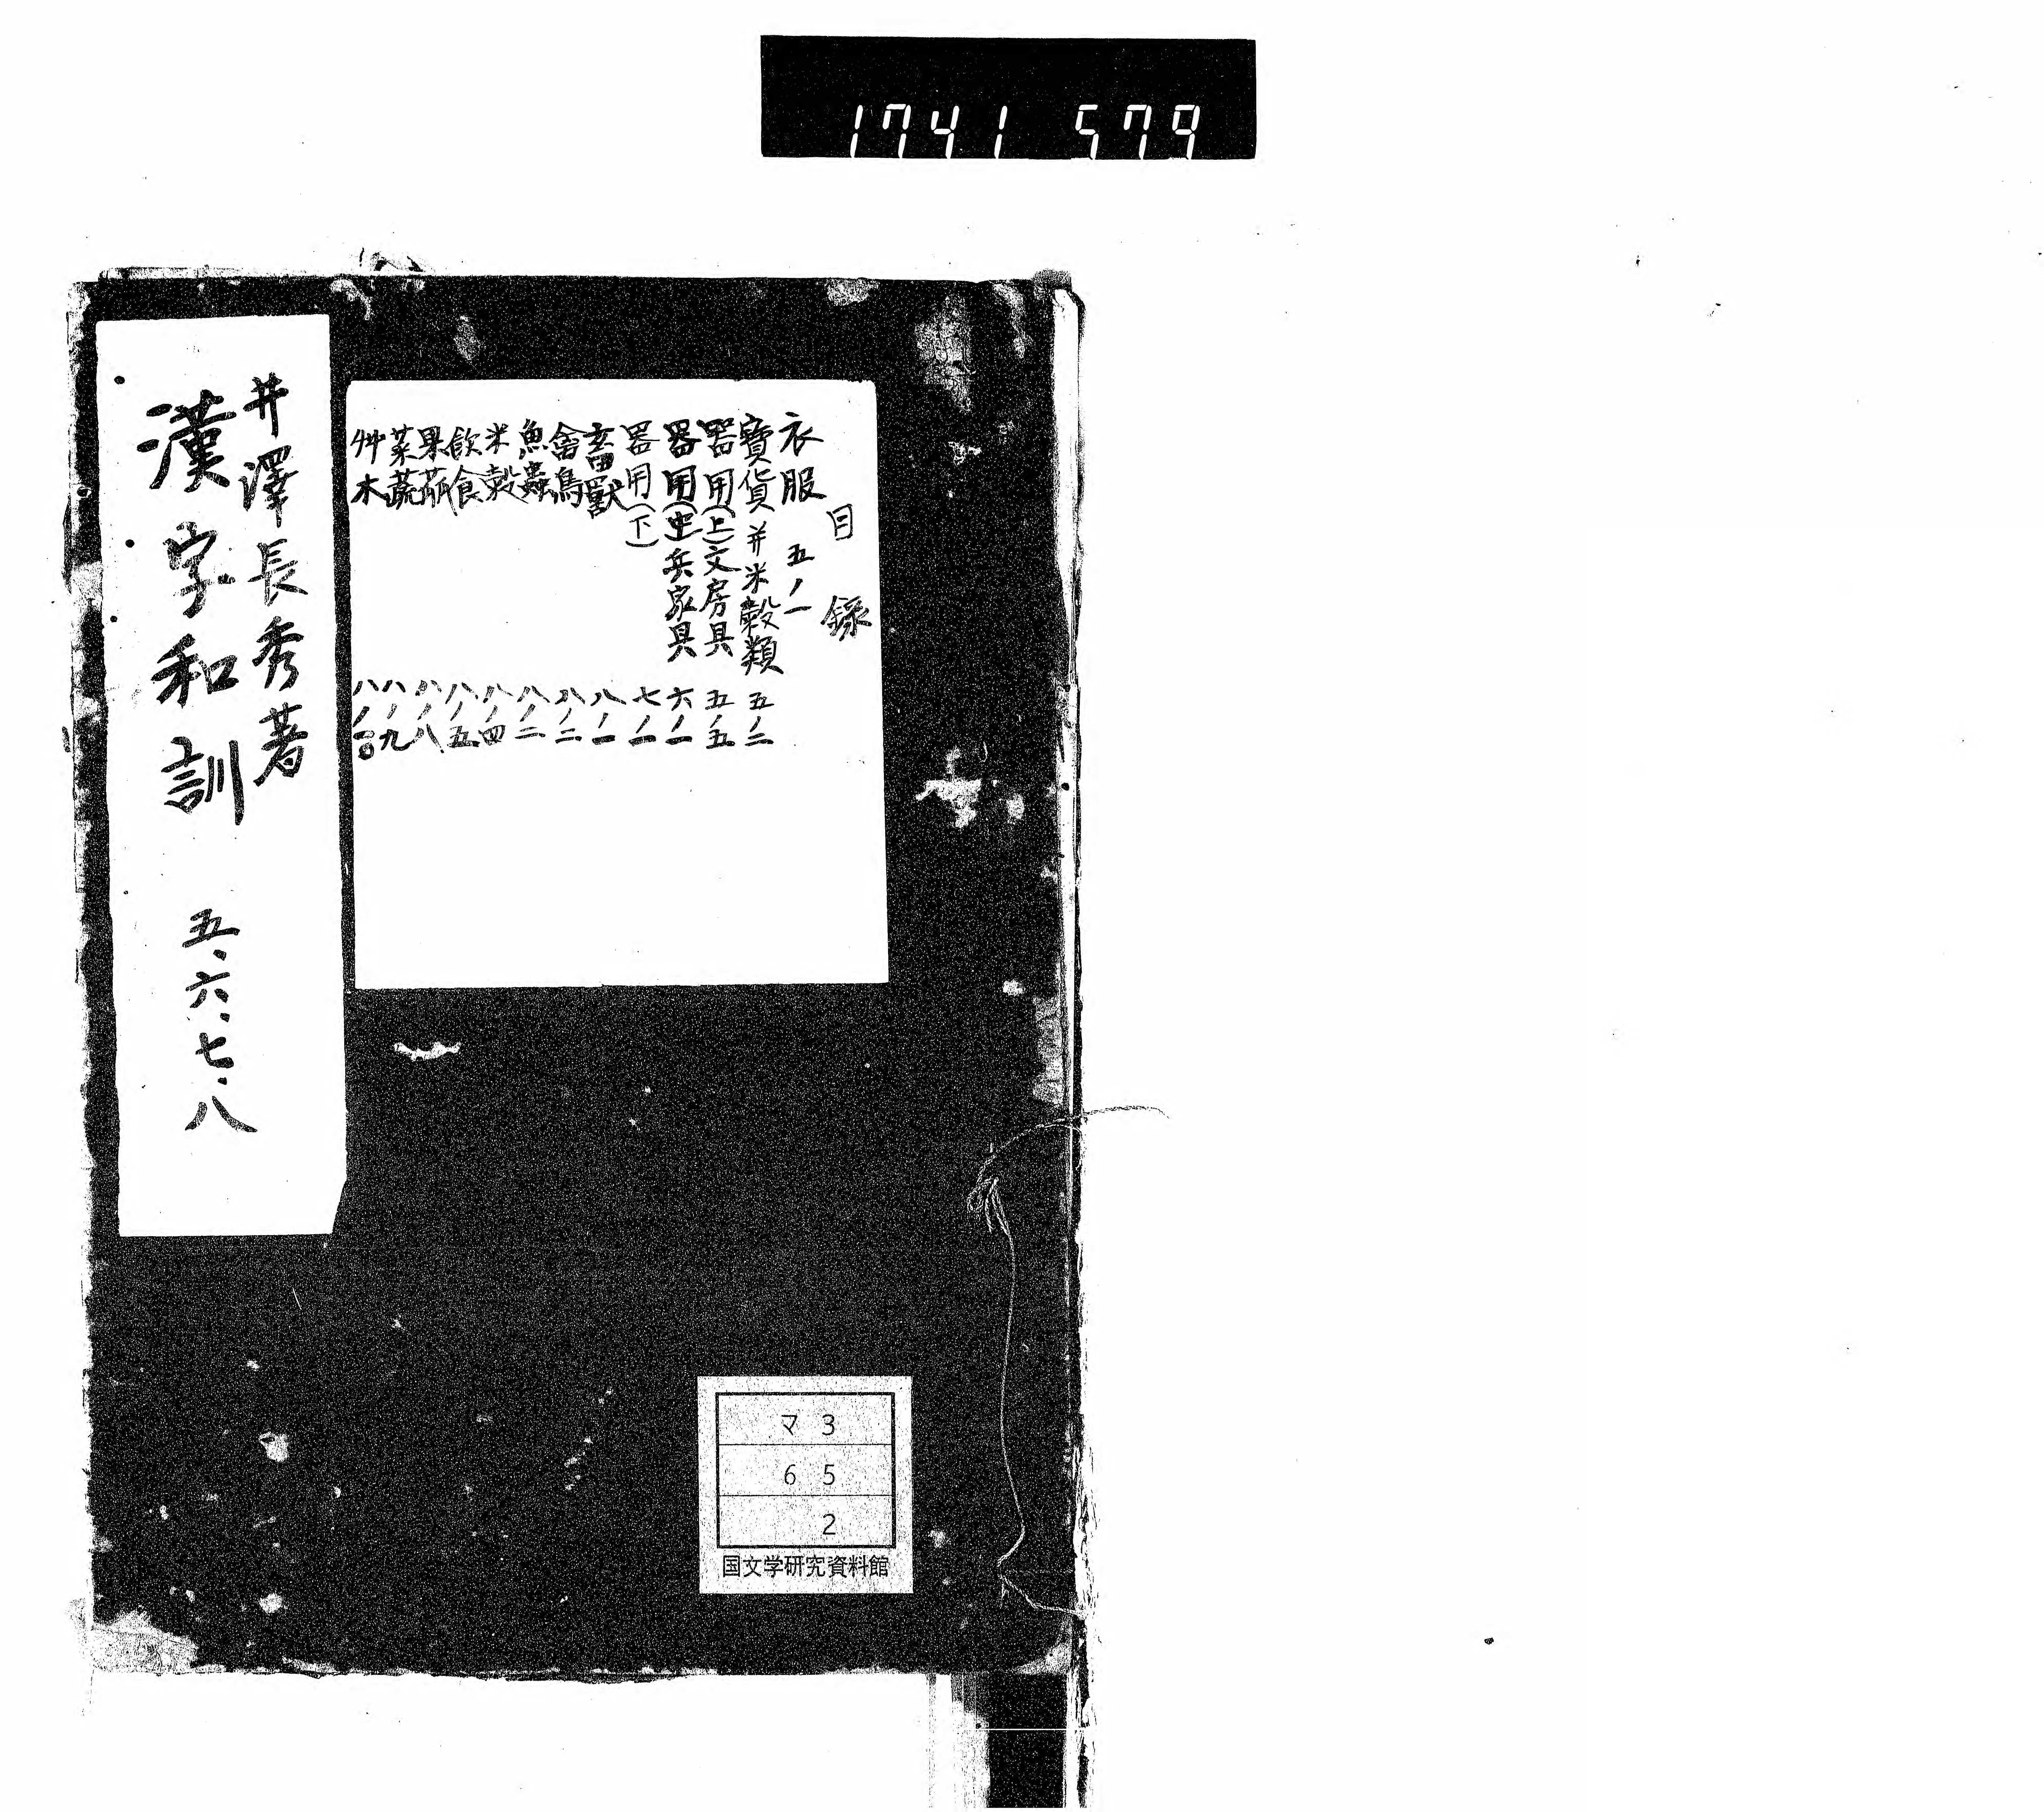 1741 579
目録
衣服 五ノ一
寶貨并米穀類 五ノ二
器用(上)文房具 五ノ五
器用(中)兵家具 六ノ一
器用(下) 七ノ一
畜獸 八ノ一
禽鳥 八ノ二
魚蟲 八ノ二
米穀 八ノ四
飲食 八ノ五
果蓏 八ノ八
菜蔬 八ノ九
艸木 八ノ一〇
井澤長秀著
漢字和訓 五、六、七、八
マ3
65
2
国文学研究資料館